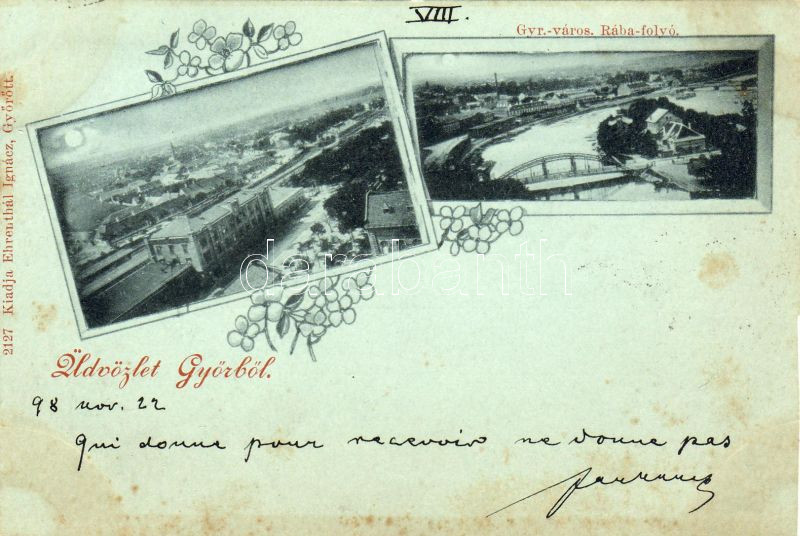 VIII.
Gyr.-város. Rába-folyó.
2127 Kiadja Ehrenthál Ignácz, Győrött.
darabanth
Üdvözlet Győrből.
98 nov. 22
Qui donne pour recevoir ne donne pas